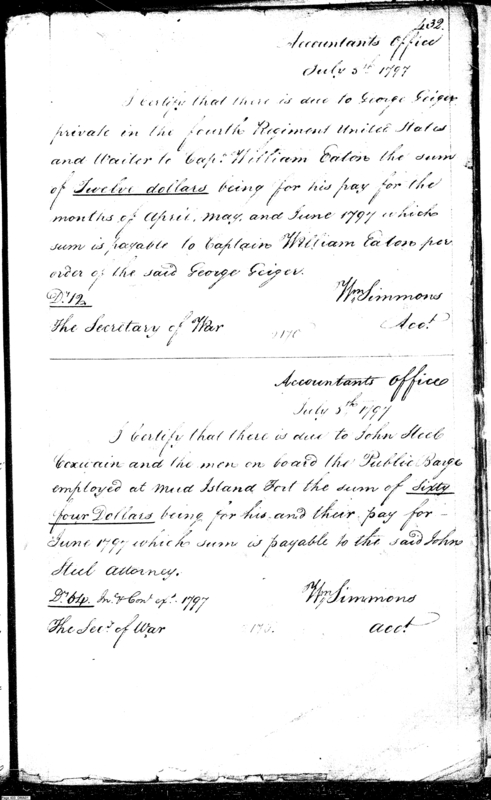 432
Accountants Office
July 5th 1797
I certify that there is due to George Geiger
private in the fourth Regiment United States
and Waiter to Capn. William Eaton the sum
of Twelve dollars being for his pay for the
months of April, may, and June 1797 which
sum is payable to Captain William Eaton per
order of the said George Geiger.
Ds. 12.
Wm. Simmons
The Secretary of War
Acct.
Accountants Office
July 5th 1797
I Certify that there is due to John Steel
Coxwain and the men on board the Public Barge
employed at Mud Island Fort the sum of Sixty
four Dollars being for his and their pay for
June 1797 which sum is payable to the said John
Steel attorney.
Ds. 64. In. & Cont. exs. 1797
Wm. Simmons
The Secy. of War
acct.